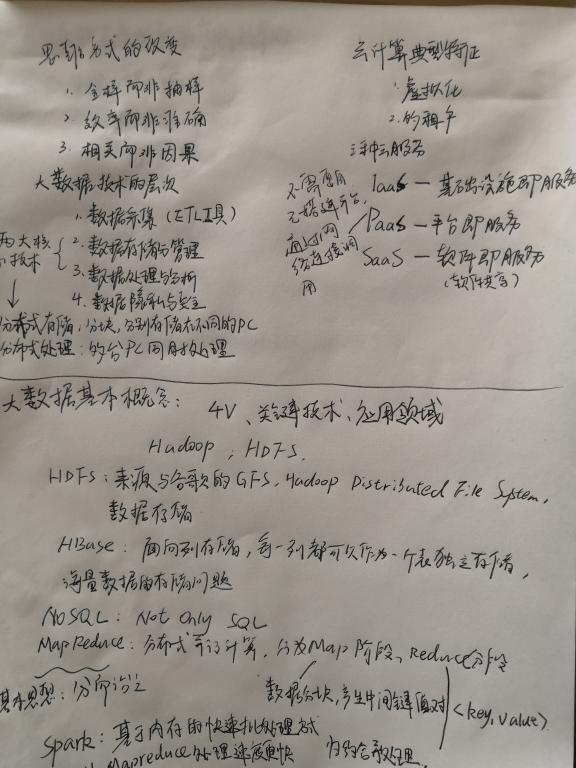 思维方式的改变
1. 全样而非抽样
2. 效率而非准确
3. 相关而非因果
大数据技术的层次
1. 数据采集 (ETL工具)
两大核心技术
2. 数据存储与管理
3. 数据处理与分析
4. 数据隐私与安全
分布式存储：分块，分别存储在不同的PC
分布式处理：的台PC同时处理
云计算典型特征
1. 虚拟化
2. 的租户
三种云服务
IaaS — 基础设施即服务
PaaS — 平台即服务
SaaS — 软件即服务
(软件共享)
不需要用
搭建平台，
通过网
络连接调
用
大数据基本概念： 4V、关键技术、应用领域
Hadoop ; HDFS.
HDFS：来源与谷歌的GFS, Hadoop Distributed File System,
数据存储
HBase：面向列存储，每一列都可以作为一个表独立存储，
海量数据的存储问题
NoSQL：Not Only SQL
MapReduce：分布式并行计算，分为Map阶段、Reduce阶段
基本思想：分而治之
数据分块，产生中间键值对 <key, value>
归约合并处理.
Spark：基于内存的快速批处理方式
Mapreduce处理速度更快